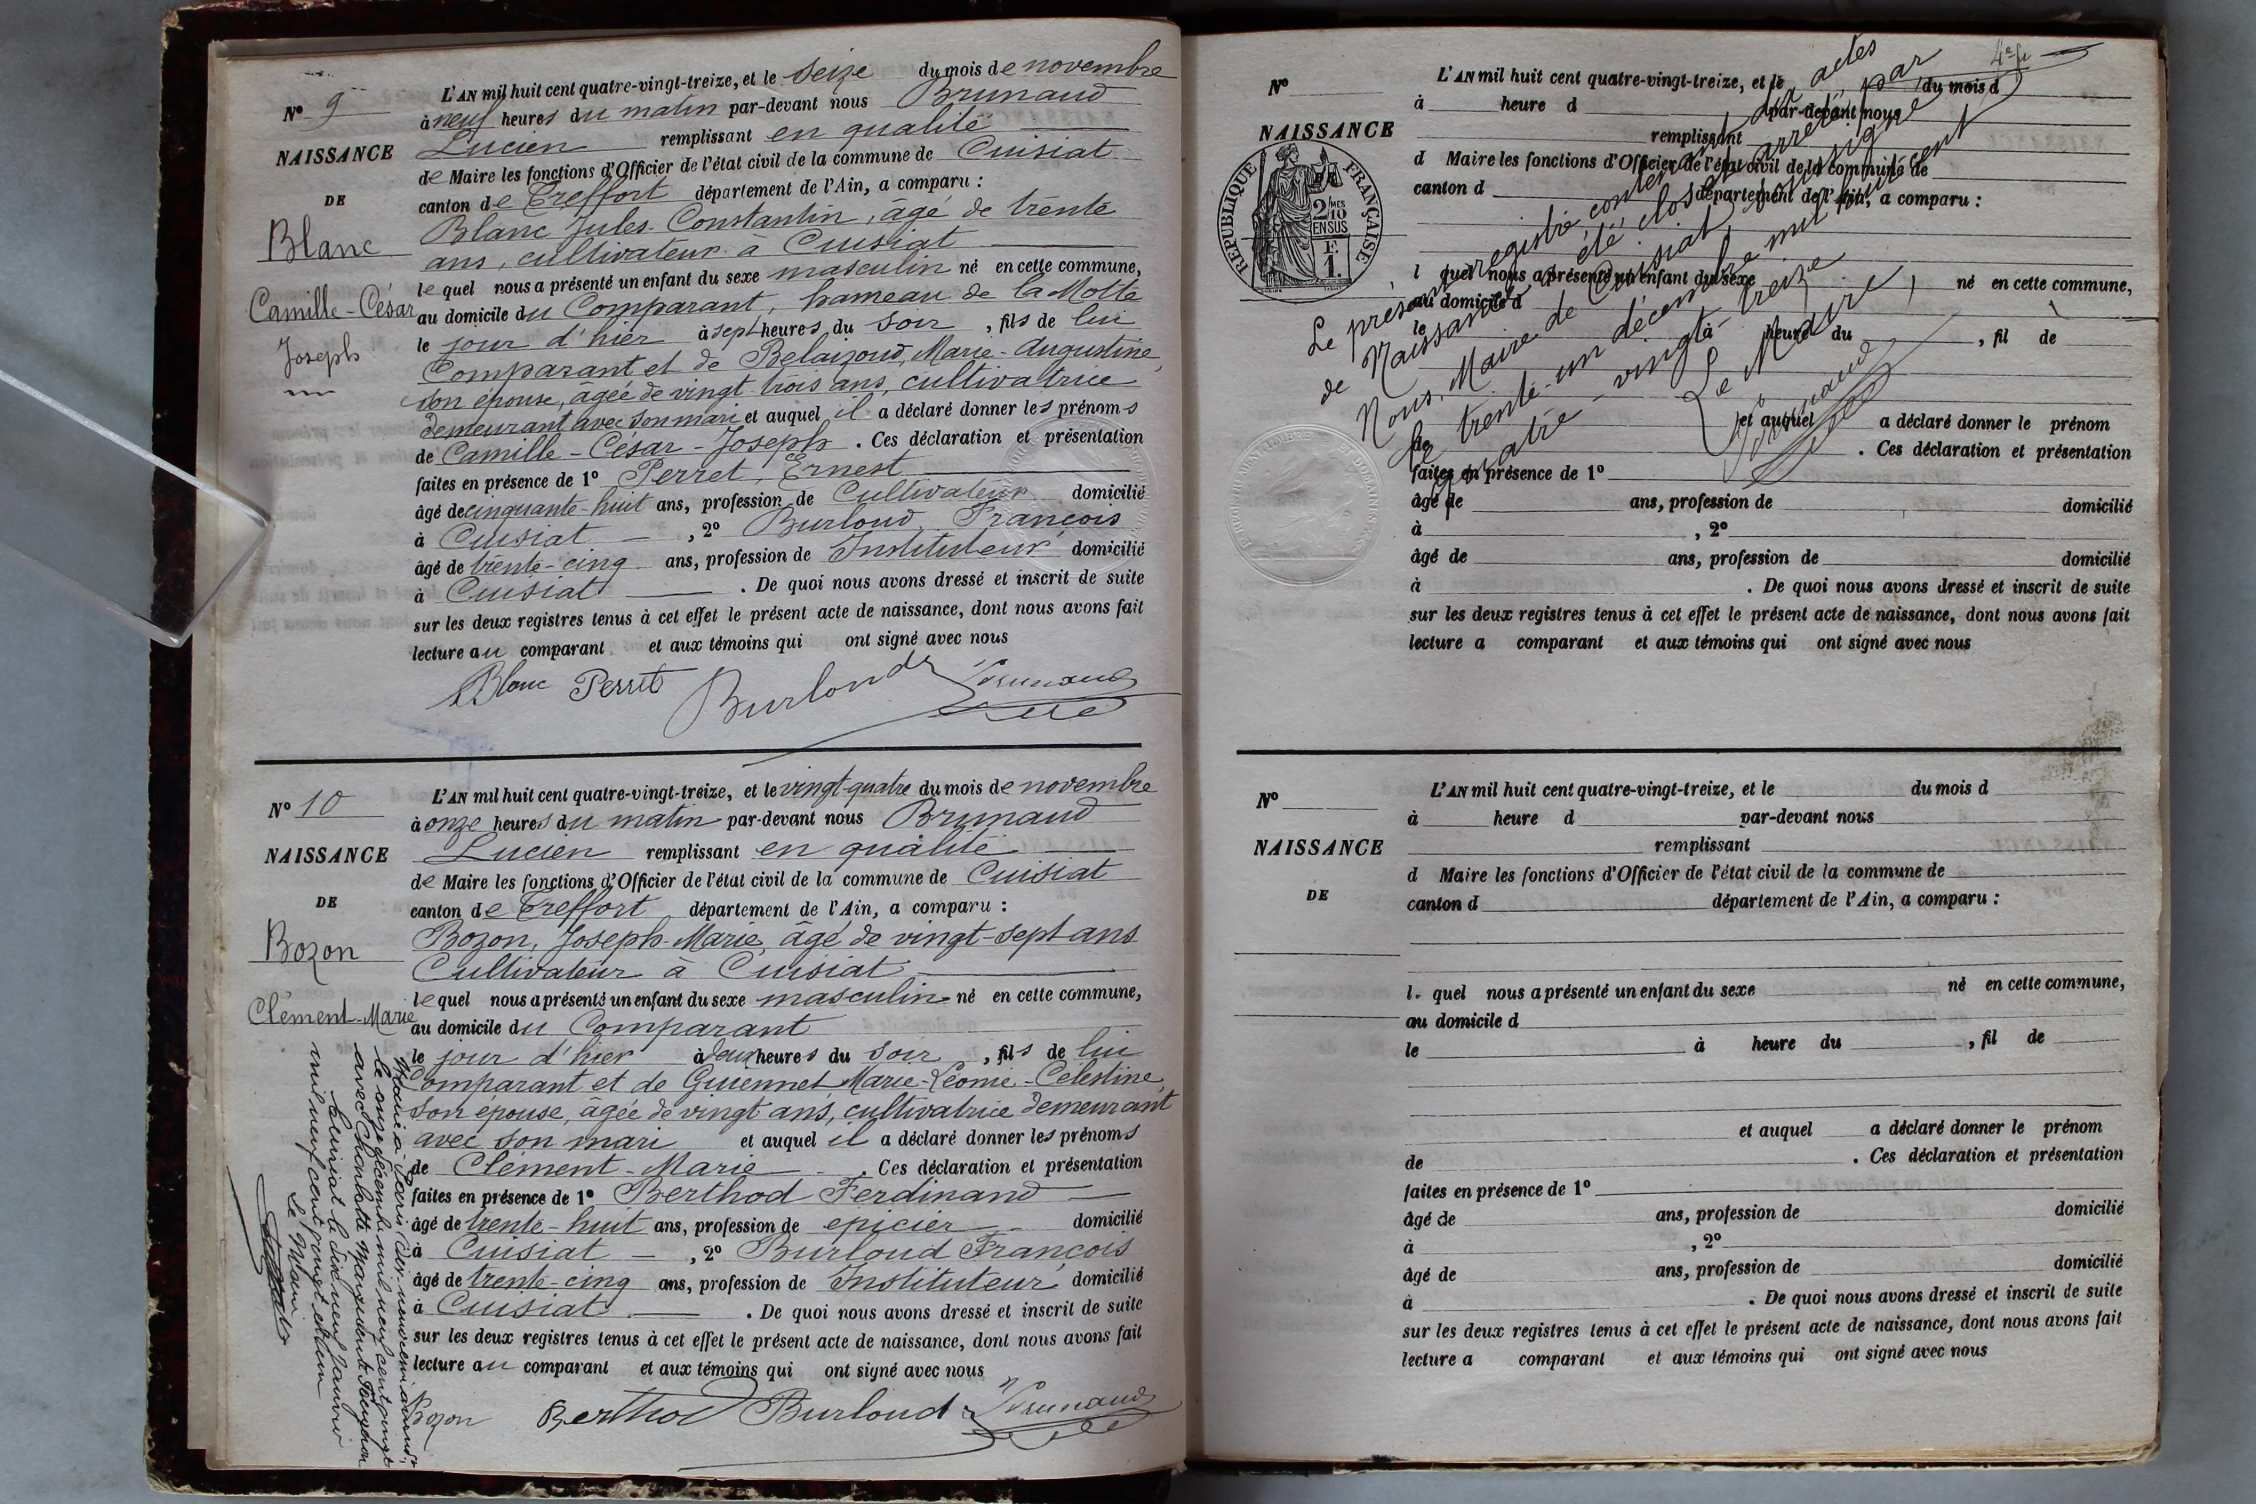 N° 9
NAISSANCE
DE
Blanc
Camille-César
Joseph
L'AN mil huit cent quatre-vingt-treize, et le seize du mois de novembre
à neuf heures du matin par-devant nous Brunaud
Lucien remplissant en qualité
de Maire les fonctions d'Officier de l'état civil de la commune de Cuisiat
canton de Treffort département de l'Ain, a comparu :
Blanc Jules Constantin, âgé de trente
ans, cultivateur à Cuisiat
lequel nous a présenté un enfant du sexe masculin né en cette commune,
au domicile du Comparant, hameau de la Motte
le jour d'hier à sept heures du soir, fils de lui
Comparant et de Belaizoud, Marie-Augustine,
son épouse, âgée de vingt trois ans, cultivatrice
demeurant avec son mari et auquel il a déclaré donner les prénoms
de Camille-César-Joseph. Ces déclaration et présentation
faites en présence de 1° Perret, Ernest
âgé de cinquante-huit ans, profession de Cultivateur domicilié
à Cuisiat, 2° Burloud François
âgé de trente-cinq ans, profession de Instituteur domicilié
à Cuisiat. De quoi nous avons dressé et inscrit de suite
sur les deux registres tenus à cet effet le présent acte de naissance, dont nous avons fait
lecture au comparant et aux témoins qui ont signé avec nous
Blanc Perret Burloud Brunaud
N° 10
NAISSANCE
DE
Bozon
Clément-Marie
L'AN mil huit cent quatre-vingt-treize, et le vingt-quatre du mois de novembre
à onze heures du matin par-devant nous Brunaud
Lucien remplissant en qualité
de Maire les fonctions d'Officier de l'état civil de la commune de Cuisiat
canton de Treffort département de l'Ain, a comparu :
Bozon, Joseph-Marie, âgé de vingt-sept ans
Cultivateur à Cuisiat
lequel nous a présenté un enfant du sexe masculin né en cette commune,
au domicile du Comparant
le jour d'hier à deux heures du soir, fils de lui
Comparant et de Guiennet Marie-Léonie-Célestine,
son épouse, âgée de vingt ans, cultivatrice demeurant
avec son mari et auquel il a déclaré donner les prénoms
de Clément-Marie. Ces déclaration et présentation
faites en présence de 1° Berthod Ferdinand
âgé de trente-huit ans, profession de epicier domicilié
à Cuisiat, 2° Burloud François
âgé de trente-cinq ans, profession de Instituteur domicilié
à Cuisiat. De quoi nous avons dressé et inscrit de suite
sur les deux registres tenus à cet effet le présent acte de naissance, dont nous avons fait
lecture au comparant et aux témoins qui ont signé avec nous
Bozon Berthod Burloud Brunaud
Marié à Paris (dix-neuvième arrondt)
le onze décembre mil neuf cent vingt
avec Charlotte Marguerite
Cuisiat le dix neuf janvier
mil neuf cent vingt et un
Le Maire
N°
NAISSANCE
RÉPUBLIQUE FRANÇAISE
2 MES
10
EN SUS
1 F.
L'AN mil huit cent quatre-vingt-treize, et le du mois d
à heure d par-devant nous
remplissant
d Maire les fonctions d'Officier de l'état civil de la commune de
canton d département de l'Ain, a comparu :
l quel nous a présenté un enfant du sexe né en cette commune,
au domicile d
le à heure du , fil de
et auquel a déclaré donner le prénom
de . Ces déclaration et présentation
faites en présence de 1°
âgé de ans, profession de domicilié
à , 2°
âgé de ans, profession de domicilié
à . De quoi nous avons dressé et inscrit de suite
sur les deux registres tenus à cet effet le présent acte de naissance, dont nous avons fait
lecture a comparant et aux témoins qui ont signé avec nous
Le présent registre, contenant dix actes
de Naissances a été clos et arrêté par
Nous, Maire de Cuisiat soussigné
le trente-un décembre mil huit cent
quatre-vingt-treize
Le Maire,
Brunaud
N°
NAISSANCE
DE
L'AN mil huit cent quatre-vingt-treize, et le du mois d
à heure d par-devant nous
remplissant
d Maire les fonctions d'Officier de l'état civil de la commune de
canton d département de l'Ain, a comparu :
l quel nous a présenté un enfant du sexe né en cette commune,
au domicile d
le à heure du , fil de
et auquel a déclaré donner le prénom
de . Ces déclaration et présentation
faites en présence de 1°
âgé de ans, profession de domicilié
à , 2°
âgé de ans, profession de domicilié
à . De quoi nous avons dressé et inscrit de suite
sur les deux registres tenus à cet effet le présent acte de naissance, dont nous avons fait
lecture a comparant et aux témoins qui ont signé avec nous